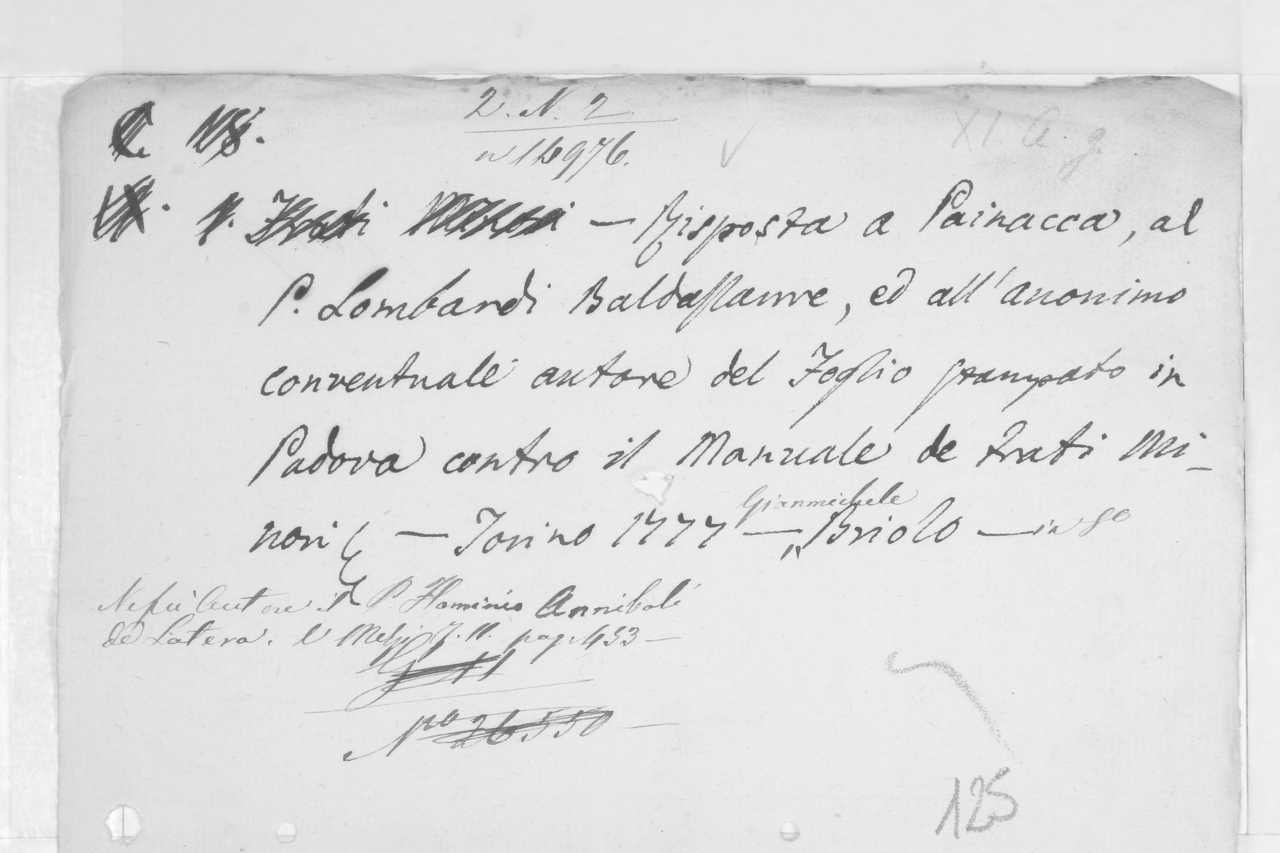 2. N. 2
n 16976.
XI. A. g.
— Risposta a Painacca, al
P. Lombardi Baldassarre, ed all' anonimo
conventuale autore del Foglio stampato in
Padova contro il Manuale de frati Mi-
nori — Torino 1777 — Gianmichele Briolo — in 8o
Ne fu autore il P. Flaminio Annibali
de Latera. V. Melzi T. II. pag. 453 —
No 26550 —
125